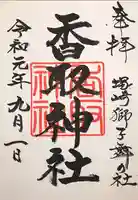 奉拝
塚崎獅子舞の社
香取神社
令和元年九月一日